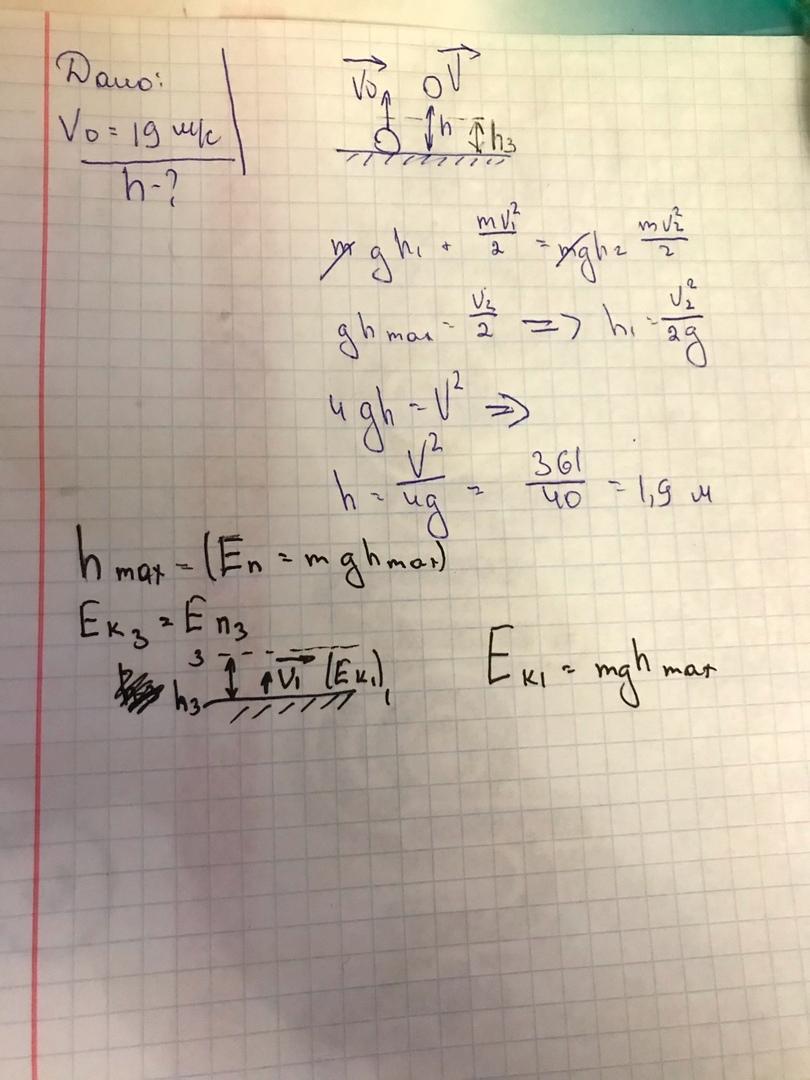 Дано:
V₀ = 19 м/с
h-?
V₀ V
h h₃
mgh₁ + mv₁²/2 = mgh₂ mv₂²/2
gh max = V₂/2 => h₁ = V₂²/2g
4gh = V² =>
h = V²/4g = 361/40 = 1,9 м
h max = (Eп = mgh max)
Eк₃ = Eп₃
3 V₁ (Eк₁)
h₃ 1
Eк₁ = mgh max